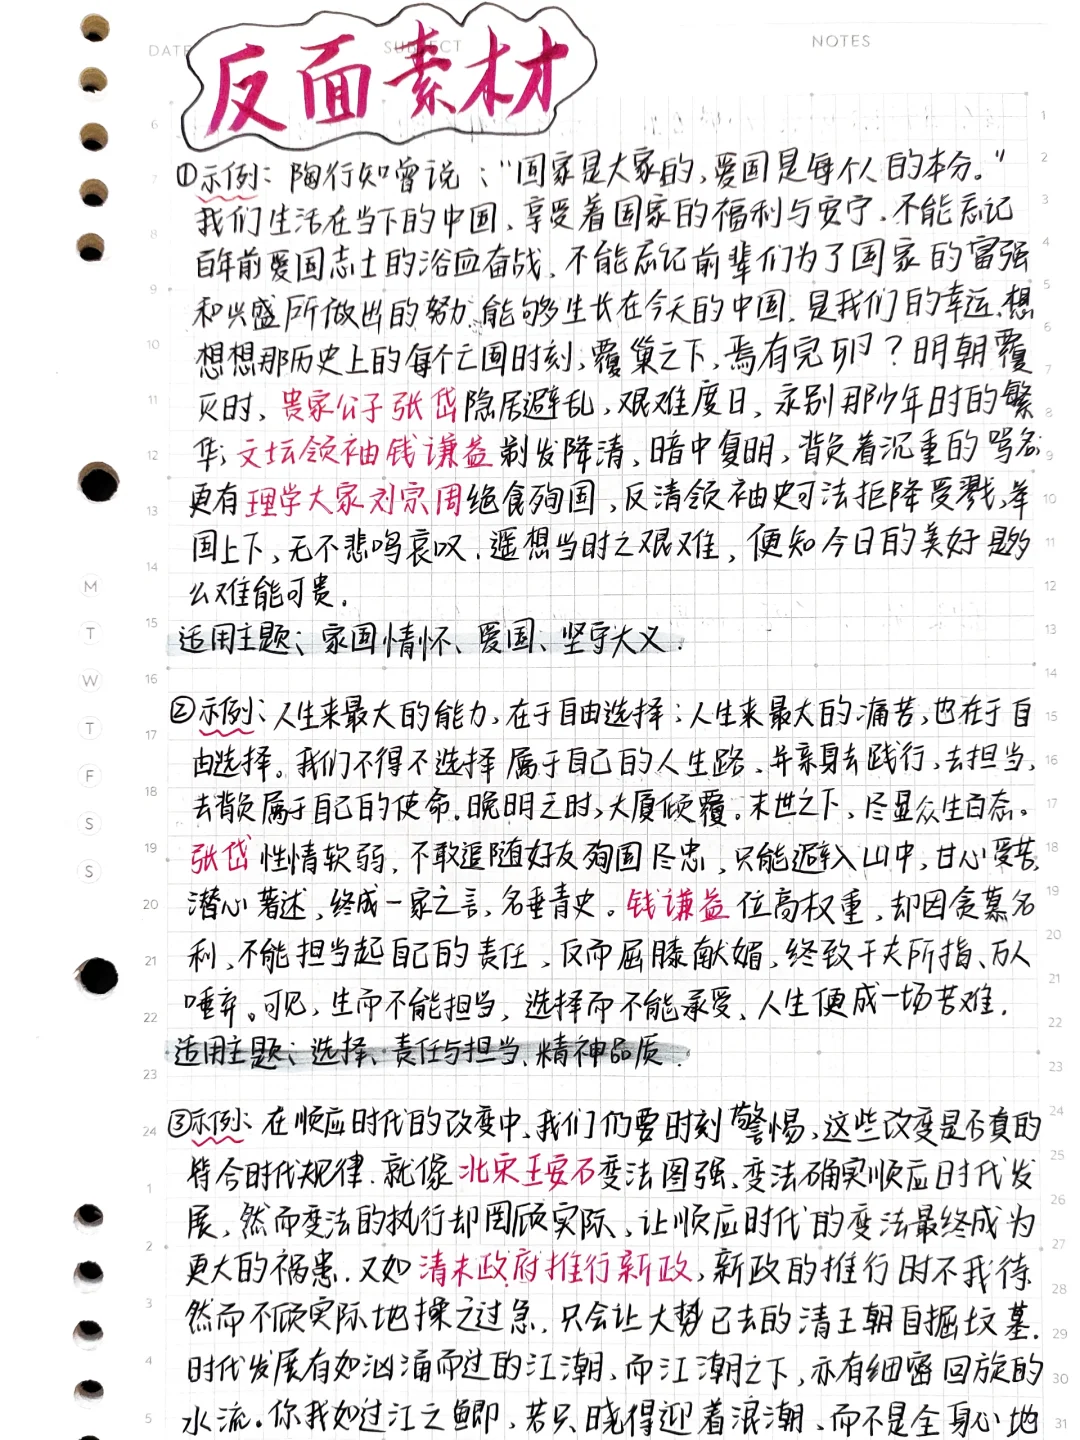 DATE
SUBJECT
NOTES
反面素材
①示例：陶行知曾说："国家是大家的，爱国是每个人的本分。"
我们生活在当下的中国，享受着国家的福利与安宁，不能忘记
百年前爱国志士的浴血奋战，不能忘记前辈们为了国家的富强
和兴盛所做出的努力，能够生长在今天的中国，是我们的幸运，想
想想那历史上的每个亡国时刻，覆巢之下，焉有完卵？明朝覆
灭时，贵家公子张岱隐居避乱，艰难度日，永别那少年时的繁
华；文坛领袖钱谦益剃发降清，暗中复明，背负着沉重的骂名；
更有理学大家刘宗周绝食殉国，反清领袖史可法拒降受戮，举
国上下，无不悲鸣哀叹。遥想当时之艰难，便知今日的美好是多
么难能可贵。
适用主题：家国情怀、爱国、坚守大义.
②示例：人生来最大的能力，在于自由选择；人生来最大的痛苦，也在于自
由选择。我们不得不选择属于自己的人生路，并亲身去践行，去担当，
去背负属于自己的使命。晚明之时，大厦倾覆。末世之下，尽显众生百态。
张岱性情软弱，不敢追随好友殉国尽忠，只能避入山中，甘心受苦，
潜心著述，终成一家之言，名垂青史。钱谦益位高权重，却因贪慕名
利，不能担当起自己的责任，反而屈膝献媚，终致千夫所指、万人
唾弃。可见，生而不能担当，选择而不能承受，人生便成一场苦难.
适用主题：选择、责任与担当、精神品质.
③示例：在顺应时代的改变中，我们仍要时刻警惕，这些改变是否真的
符合时代规律.就像北宋王安石变法图强，变法确实顺应时代发
展，然而变法的执行却罔顾实际，让顺应时代的变法最终成为
更大的祸患.又如清末政府推行新政，新政的推行时不我待
然而不顾实际地操之过急，只会让大势已去的清王朝自掘坟墓.
时代发展有如汹涌而过的江潮，而江潮之下，亦有细密回旋的
水流。你我如过江之鲫，若只晓得迎着浪潮，而不是全身心地